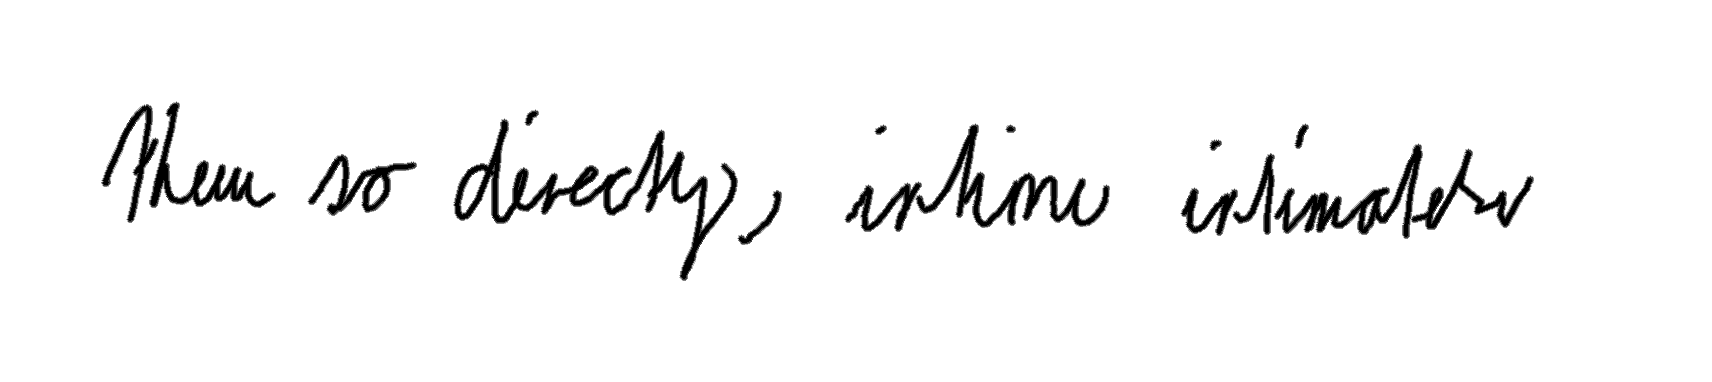 them so directly, intimu intimates